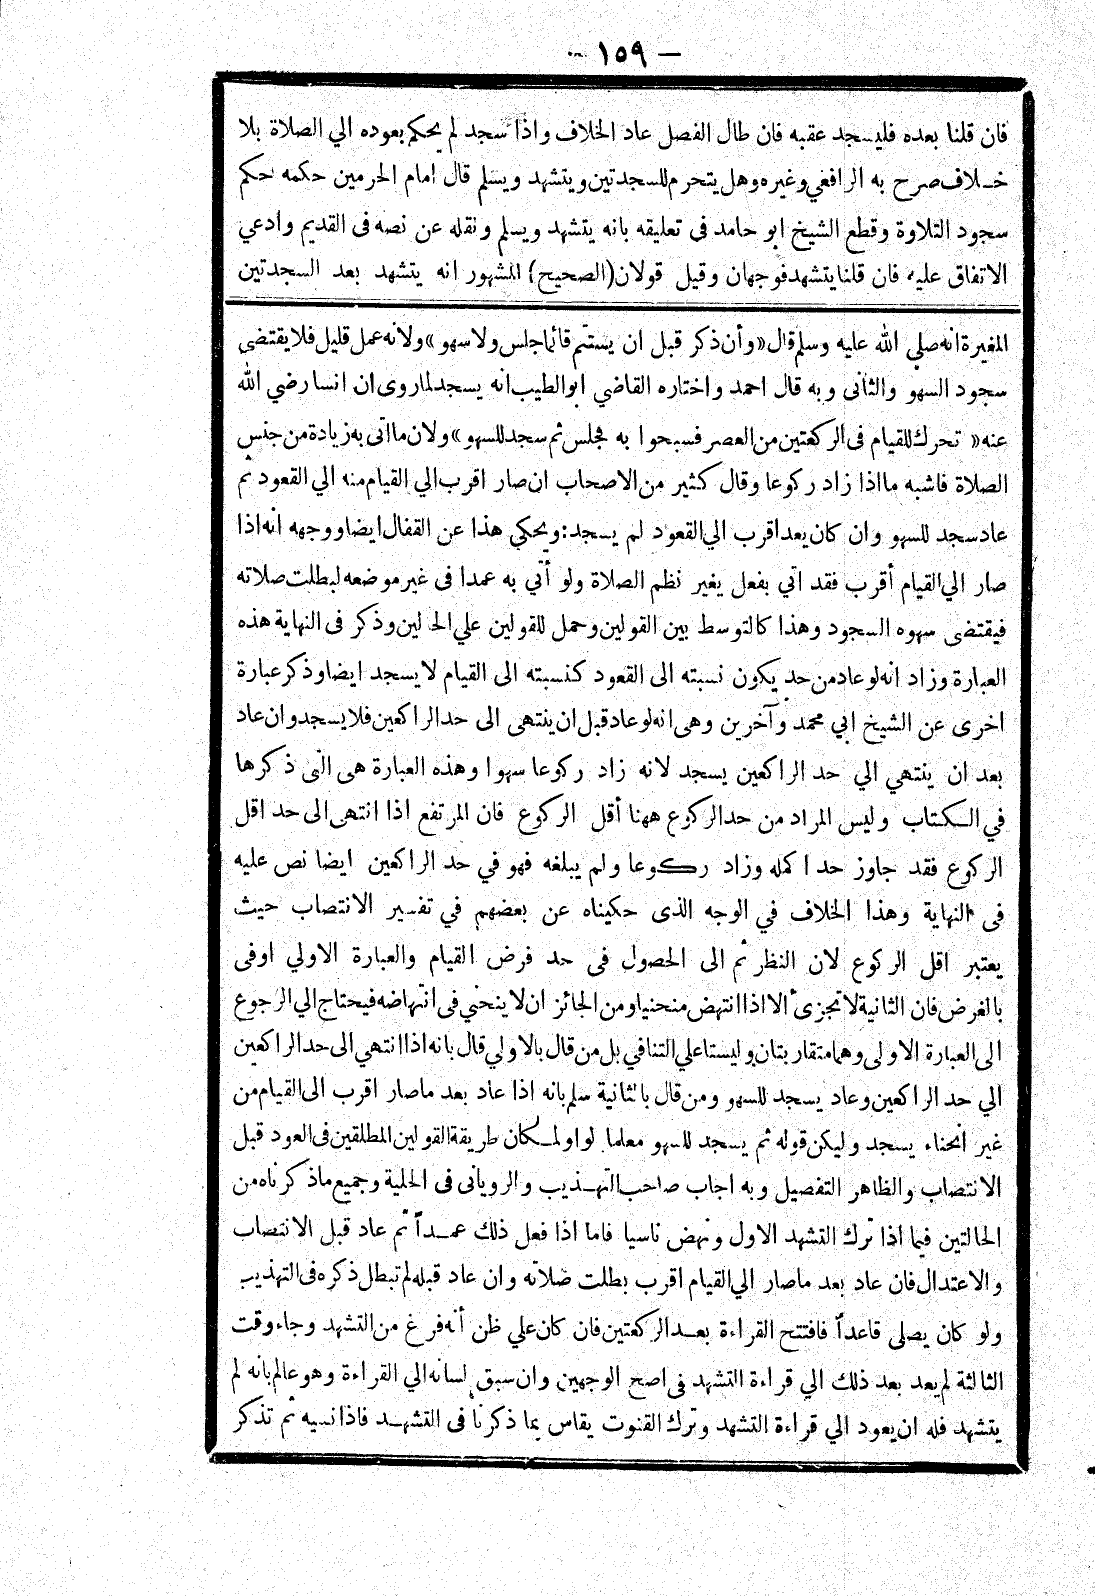 — ١٥٩ —
فان قلنا بعده فليسجد عقبه فان طال الفصل عاد الخلاف واذا سجد لم يحكم بعوده الي الصلاة بلا
خلاف صرح به الرافعي وغيره وهل يتحرم للسجدتين ويتشهد ويسلم قال امام الحرمين حكمه حكم
سجود التلاوة وقطع الشيخ ابو حامد فى تعليقه بانه يتشهد ويسلم ونقله عن نصه فى القديم وادعي
الاتفاق عليه فان قلنا يتشهد فوجهان وقيل قولان (الصحيح) المشهور انه يتشهد بعد السجدتين
المغيرة انه صلي الله عليه وسلم قال « وأن ذكر قبل ان يستتم قائما جلس ولا سهو » ولانه عمل قليل فلا يقتضي
سجود السهو والثانى وبه قال احمد واختاره القاضي ابو الطيب انه يسجد لما روى ان انسا رضي الله
عنه « تحرك للقيام فى الركعتين من العصر فسبحوا به فجلس ثم سجد للسهو » ولان ما اتى به زيادة من جنس
الصلاة فاشبه ما اذا زاد ركوعا وقال كثير من الاصحاب ان صار اقرب الي القيام منه الي القعود ثم
عاد سجد للسهو وان كان بعد اقرب الي القعود لم يسجد: ويحكي هذا عن القفال ايضا ووجهه انه اذا
صار الي القيام أقرب فقد اتي بفعل يغير نظم الصلاة ولو أتي به عمدا فى غير موضعه لبطلت صلاته
فيقتضى سهوه السجود وهذا كالتوسط بين القولين وحمل للقولين علي الحالين وذكر فى النهاية هذه
العبارة وزاد انه لو عاد من حد يكون نسبته الى القعود كنسبته الى القيام لا يسجد ايضا وذكر عبارة
اخرى عن الشيخ ابي محمد وآخرين وهى انه لو عاد قبل ان ينتهى الى حد الراكعين فلا يسجد وان عاد
بعد ان ينتهي الي حد الراكعين يسجد لانه زاد ركوعا سهوا وهذه العبارة هى التى ذكرها
في الكتاب وليس المراد من حد الركوع ههنا أقل الركوع فان المرتفع اذا انتهى الى حد اقل
الركوع فقد جاوز حد اكمله وزاد ركوعا ولم يبلغه فهو في حد الراكعين ايضا نص عليه
فى النهاية وهذا الخلاف في الوجه الذى حكيناه عن بعضهم في تفسير الانتصاب حيث
يعتبر اقل الركوع لان النظر ثم الى الحصول فى حد فرض القيام والعبارة الاولي اوفى
بالغرض فان الثانية لا تجزى ألا اذا انتهض منحنيا ومن الجائز ان لا ينحني فى انتهاضه فيحتاج الي الرجوع
الى العبارة الاولى وهما متقاربتان وليستا علي التنافي بل من قال بالاولي قال بانه اذا انتهي الى حد الراكعين
الي حد الراكعين وعاد يسجد للسهو ومن قال بالثانية سلم بانه اذا عاد بعد ما صار اقرب الى القيام من
غير انحناء يسجد وليكن قوله ثم يسجد للسهو معلما لو اولمكان طريقة القولين المطلقين فى العود قبل
الانتصاب والظاهر التفصيل وبه اجاب صاحب التهذيب والرويانى فى الحلية وجميع ما ذكرناه من
الحالتين فيما اذا ترك التشهد الاول ونهض ناسيا فاما اذا فعل ذلك عمداً ثم عاد قبل الانتصاب
والاعتدال فان عاد بعد ما صار الي القيام اقرب بطلت صلاته وان عاد قبله لم تبطل ذكره فى التهذيب
ولو كان يصلى قاعداً فافتتح القراءة بعد الركعتين فان كان علي ظن أنه فرغ من التشهد وجاء وقت
الثالثة لم يعد بعد ذلك الي قراءة التشهد فى اصح الوجهين وان سبق لسانه الي القراءة وهو عالم بانه لم
يتشهد فله ان يعود الي قراءة التشهد وترك القنوت يقاس بما ذكرنا فى التشهد فاذا نسيه ثم تذكر